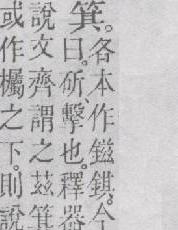 箕。
各本作鎡錤。今
曰。斫、擊也。釋器
說文齊謂之茲箕
或作欘之下。則說